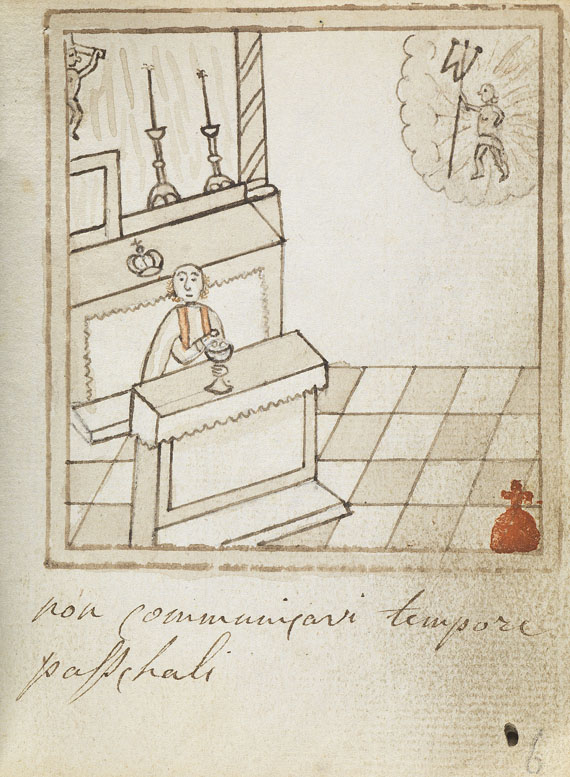 non communicavi tempore
passchali
6